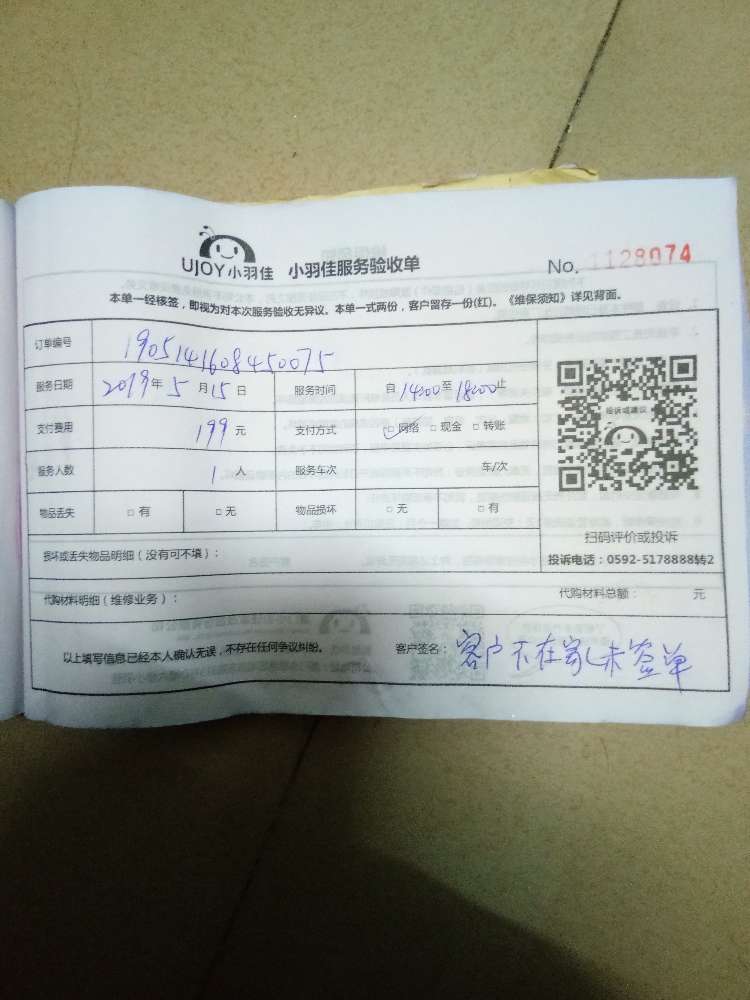 UJOY小羽佳 小羽佳服务验收单 No. 1128074
本单一经核签，即视为对本次服务验收无异议。本单一式两份，客户留存一份(红)。《维保须知》详见背面。
订单编号 1905141608450075
服务日期 2019年5月15日 服务时间 自14:00至18:00止
支付费用 199元 支付方式 □网络 □现金 □转账
服务人数 1人 服务车次 车/次
物品丢失 □有 □无 物品损坏 □无 □有
投诉或建议
扫码评价或投诉
投诉电话：0592-5178888转2
损坏或丢失物品明细（没有可不填）：
代购材料明细（维修业务）： 代购材料总额： 元
以上填写信息已经本人确认无误，不存在任何争议纠纷。 客户签名：客户不在家未签单